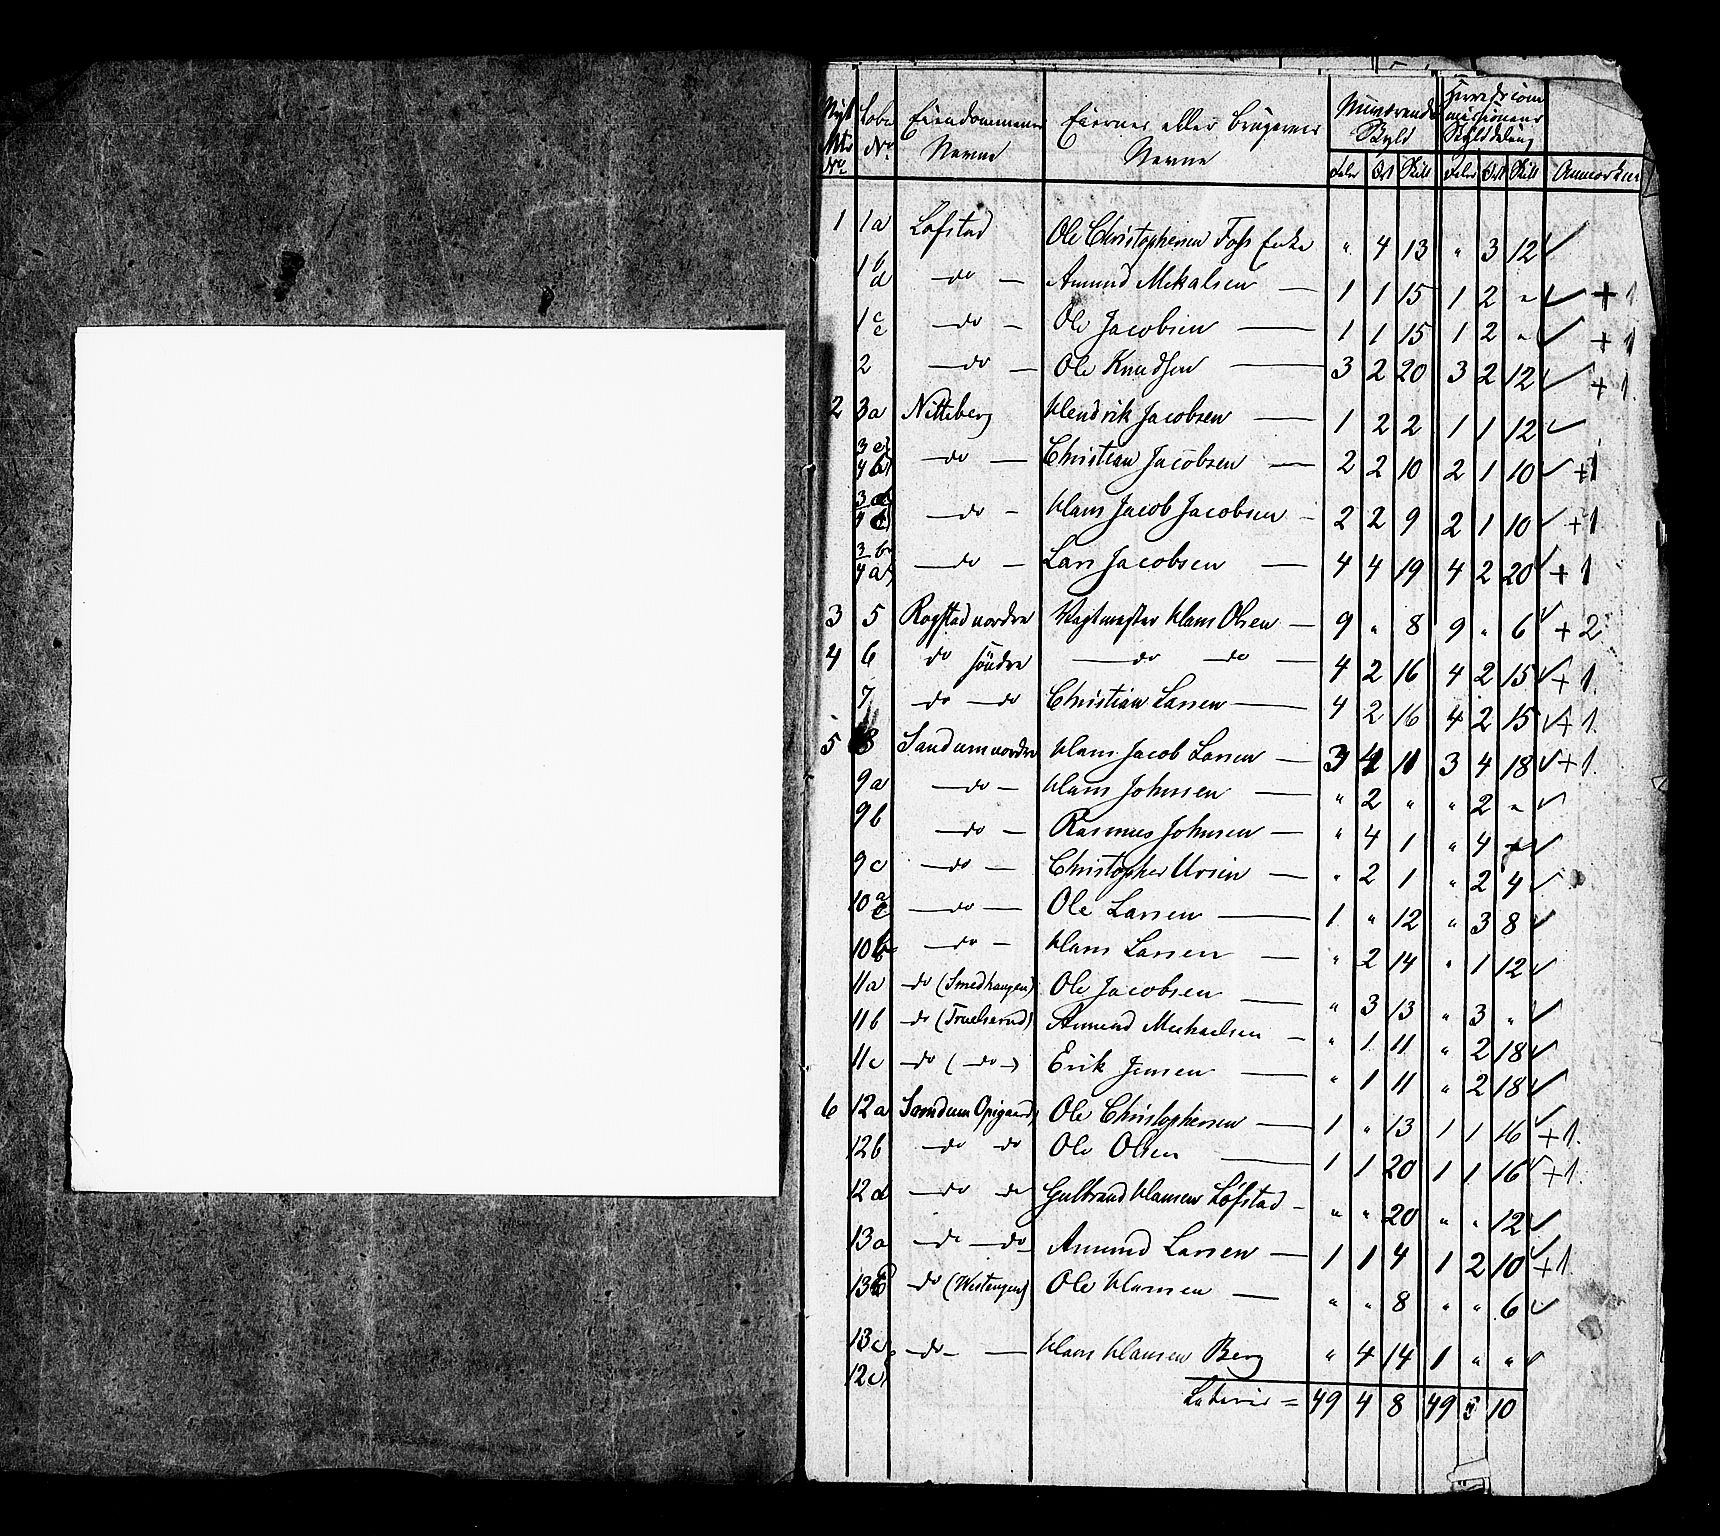 Nyt Mtr No | Løbe No | Eiendommenes Navne | Eiernes eller Brugernes Navne | Nuværende Skyld | Herredscommissionens Skylddeling | Anmærkn
Daler Ort Skill | Daler Ort Skill
1 1a Løfstad Ole Christophersen Foss Enke " 4 13 " 3 12 ✓
1 b d — do — Amund Mikalsen — 1 1 15 1 2 " ✓ +1
1 c e — do — Ole Jacobsen — 1 1 15 1 2 " ✓ +1
2 — do — Ole Knudsen — 3 2 20 3 2 12 ✓ +1
2 3a Nitteberg Hendrik Jacobsen — 1 2 2 1 1 12 ✓
4b — do — Christian Jacobsen — 2 2 10 2 1 10 ✓ +1
— do — Hans Jacob Jacobsen — 2 2 9 2 1 10 ✓ +1
3b 4a — do — Lars Jacobsen — 4 4 19 4 2 20 ✓ +1
3 5 Rogstad nordre Vagtmester Hans Olsen — 9 " 8 9 " 6 ✓ +2
4 6 do søndre — do do — 4 2 16 4 2 15 ✓ +1
7 — do — do Christian Larsen — 4 2 16 4 2 15 ✓ +1
5 8 Sandum nordre Hans Jacob Larsen — 3 4 11 3 4 18 ✓ +1
9a — do — Hans Johnsen — " 2 " " 2 " ✓
9b — do — Rasmus Johnsen — " 4 1 " 4 ✓
9c — do — Christopher Ursin — " 2 1 " 2 4 ✓
10 a — do — Ole Larsen — 1 " 12 " 3 8 ✓
10b — do — Hans Larsen — " 2 14 " 1 12 ✓
11a — do (Smedhaugen) Ole Jacobsen — " 3 13 " 3 " ✓
11b — do (Truelserud) Amund Michaelsen — " 1 11 " 2 18 ✓
11c — do ( — do — ) Erik Jensen — " 1 11 " 2 18 ✓
6 12a Sandum Opigaard Ole Christophersen — 1 " 13 1 1 16 ✓ +1
12b — do do Ole Olsen — 1 1 20 1 1 16 ✓ +1
12d — do do Gulbrand Hansen Løfstad — " " 20 " " 12 ✓
13a — do — do Amund Larsen — 1 1 4 1 2 10 ✓ +1
13 — do (Westengen) Ole Hansen — " " 8 " " 6 ✓
13c — do — Hans Hansen Berg " 4 14 1 " " ✓
12c
Lateris = 49 4 8 49 10